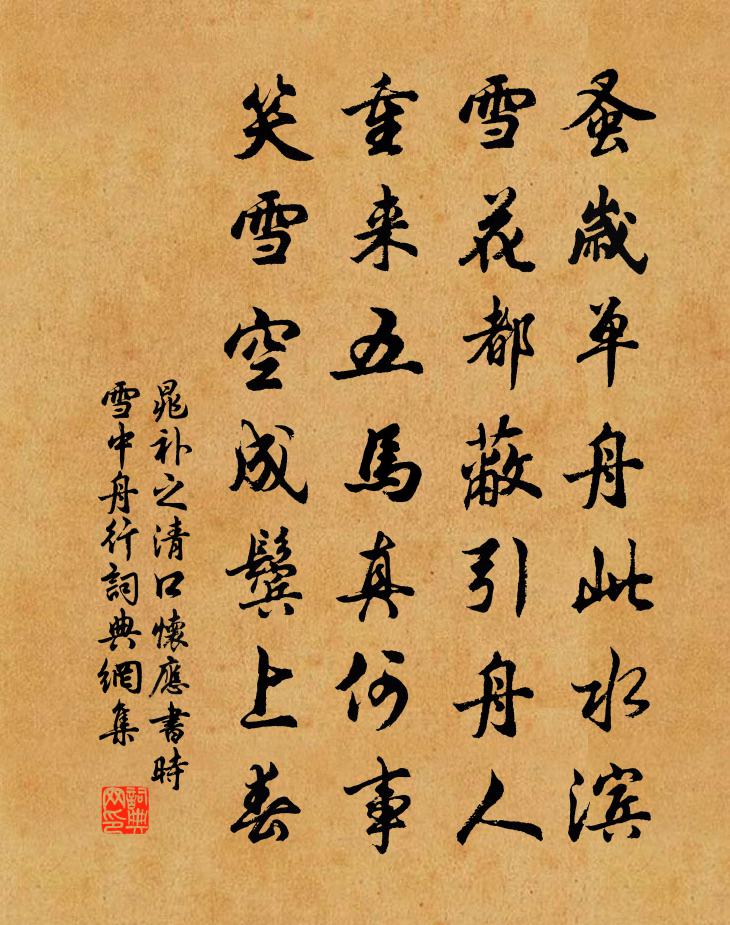 蚤歲单舟此水滨
雪花都蔽引舟人
重来五馬真何事
笑雪空成鬓上春
晁补之清口懷應書時
雪中舟行詞典網集
詞典
网印